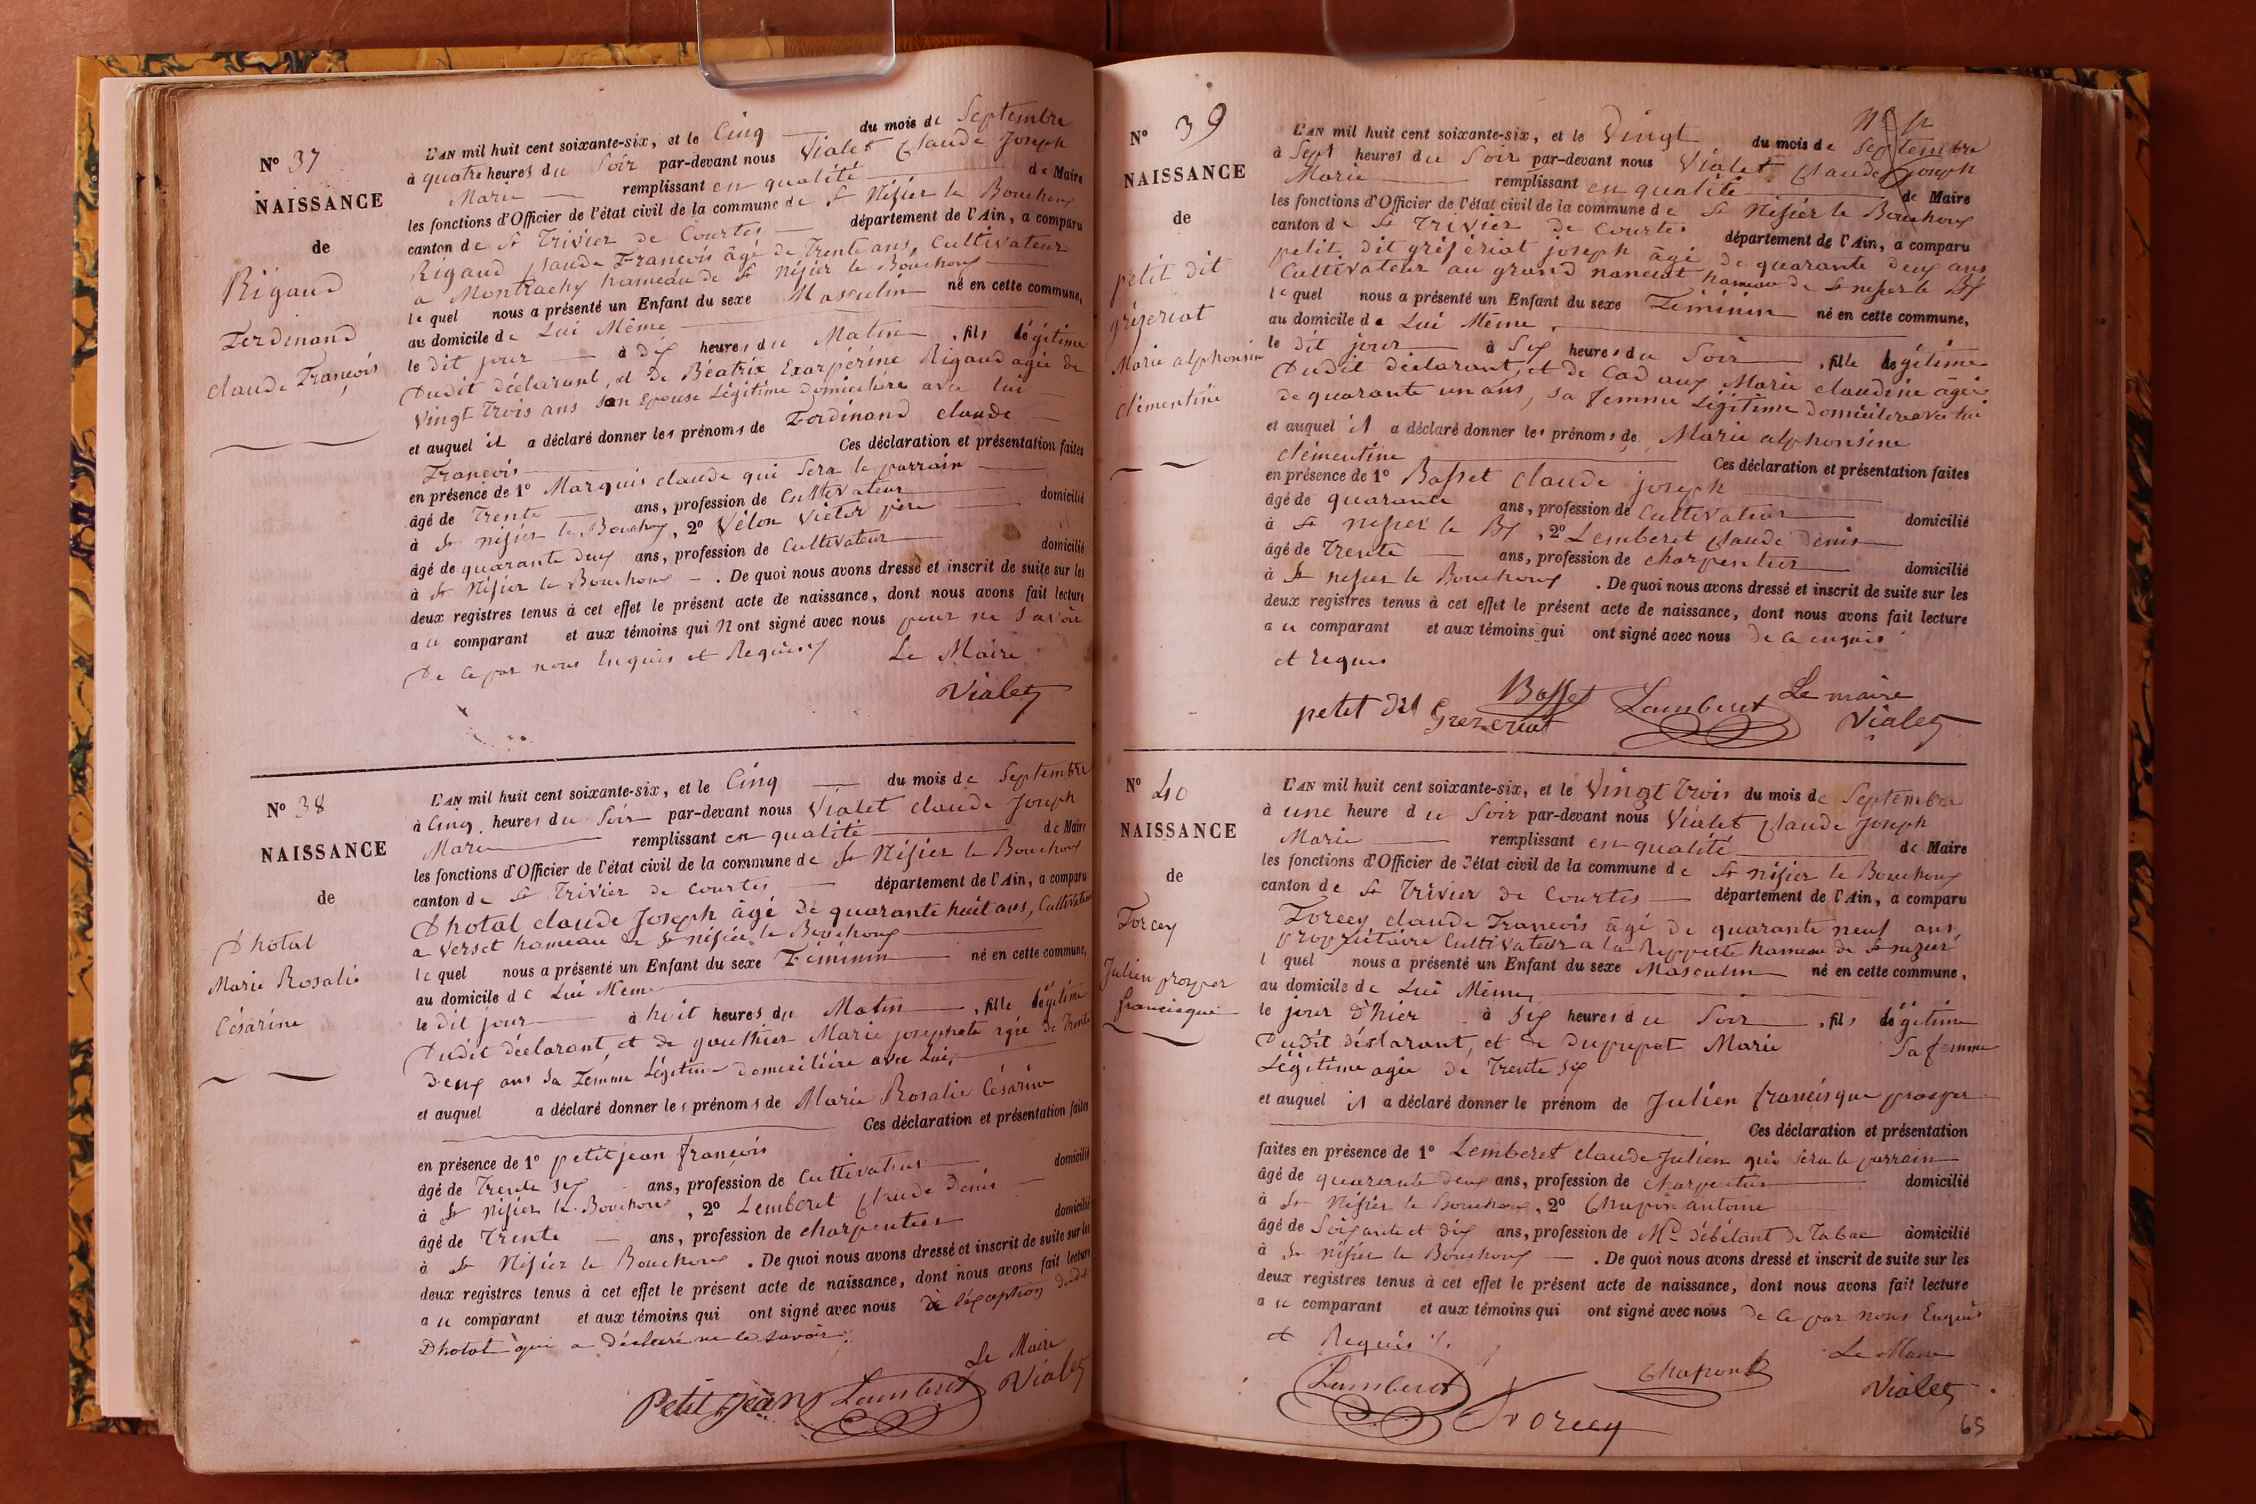 N° 37
NAISSANCE
de
Rigaud
Ferdinand
claude François
L'AN mil huit cent soixante-six, et le Cinq du mois de Septembre
à quatre heures du Soir par-devant nous Vialet Claude Joseph
Marie remplissant en qualité de Maire
les fonctions d'Officier de l'état civil de la commune de St Nisier le Bouchoux
canton de St Trivier de Courtes département de l'Ain, a comparu
Rigaud Claude François âgé de Trente ans, Cultivateur
a Montrachy hameau de St Nisier le Bouchoux
lequel nous a présenté un Enfant du sexe Masculin né en cette commune,
au domicile de Lui Même
le dit jour à dix heures du Matin, fils légitime
Dudit déclarant, et de Béatrix Exarpérine Rigaud agée de
Vingt Trois ans son Epouse Légitime domiciliére avec lui
et auquel il a déclaré donner les prénoms de Ferdinand claude
François Ces déclaration et présentation faites
en présence de 1° Marquis claude qui Sera le parrain
âgé de Trente ans, profession de Cultivateur domicilié
à St nisier le Bouchoux, 2° Vélon Victor père
âgé de quarante deux ans, profession de Cultivateur domicilié
à St Nisier le Bouchoux . De quoi nous avons dressé et inscrit de suite sur les
deux registres tenus à cet effet le présent acte de naissance, dont nous avons fait lecture
a u comparant et aux témoins qui N ont signé avec nous pour ne Savoir
De ce par nous Enquis et Requis
Le Maire
Vialet
N° 38
NAISSANCE
de
Dhotal
Marie Rosalie
Césarine
L'AN mil huit cent soixante-six, et le Cinq du mois de Septembre
à Cinq heures du Soir par-devant nous Vialet claude Joseph
Marie remplissant en qualité de Maire
les fonctions d'Officier de l'état civil de la commune de St Nisier le Bouchoux
canton de St Trivier de Courtes département de l'Ain, a comparu
Dhotal claude Joseph âgé de quarante huit ans, Cultivateur
a Verset hameau de St nisier le Bouchoux
lequel nous a présenté un Enfant du sexe Féminin né en cette commune,
au domicile de Lui Même
le dit jour à huit heures du Matin, fille légitime
Dudit déclarant, et de gauthier Marie josephete agée de Trente
Deux ans Sa Femme Légitime domiciliére avec Lui,
et auquel a déclaré donner les prénoms de Marie Rosalie Césarine
Ces déclaration et présentation faites
en présence de 1° petitjean françois
âgé de Trente six ans, profession de Cultivateur domicilié
à St Nisier le Bouchoux, 2° Lemberet Claude Denis
âgé de Trente ans, profession de charpentier domicilié
à St Nisier le Bouchoux . De quoi nous avons dressé et inscrit de suite sur les
deux registres tenus à cet effet le présent acte de naissance, dont nous avons fait lecture
a u comparant et aux témoins qui ont signé avec nous à l'éxception dudit
Dhotal qui a déclaré ne le savoir
Le Maire
Petit Jean Lamberet Vialet
N° 39
NAISSANCE
de
petit dit
gréseriat
Marie alphonsine
clémentine
L'AN mil huit cent soixante-six, et le Vingt du mois de Septembre
à Sept heures du Soir par-devant nous Vialet Claude Joseph
Marie remplissant en qualité de Maire
les fonctions d'Officier de l'état civil de la commune de St Nisier le Bouchoux
canton de St Trivier de Courtes département de l'Ain, a comparu
petit dit gréseriat joseph âgé de quarante deux ans
Cultivateur au grand nancuat hameau de St nisier le Bx
lequel nous a présenté un Enfant du sexe Féminin né en cette commune,
au domicile de Lui Même
le dit jour à Six heures du Soir, fille légitime
Dudit déclarant, et de Cadaux Marie claudine âgée
de quarante un ans, sa femme Légitime domiciliére avec lui
et auquel il a déclaré donner les prénoms de Marie alphonsine
clémentine Ces déclaration et présentation faites
en présence de 1° Basset Claude joseph
âgé de quarante ans, profession de Cultivateur domicilié
à St nisier le Bx, 2° Lemberet Claude Denis
âgé de Trente ans, profession de charpentier domicilié
à St nisier le Bouchoux . De quoi nous avons dressé et inscrit de suite sur les
deux registres tenus à cet effet le présent acte de naissance, dont nous avons fait lecture
a u comparant et aux témoins qui ont signé avec nous de ce enquis
et requis
petit dit Grezeriat Basset Lamberet Le maire Vialet
N° 40
NAISSANCE
de
Torcey
Julien prosper
francisque
L'AN mil huit cent soixante-six, et le Vingt Trois du mois de Septembre
à une heure du Soir par-devant nous Vialet Claude Joseph
Marie remplissant en qualité de Maire
les fonctions d'Officier de l'état civil de la commune de St nisier le Bouchoux
canton de St Trivier de Courtes département de l'Ain, a comparu
Torcey claude François âgé de quarante neuf ans,
propriétaire Cultivateur a la Reppette hameau de St nizier
l quel nous a présenté un Enfant du sexe Masculin né en cette commune,
au domicile de Lui Même,
le jour d'hier à Six heures du Soir, fils légitime
Dudit déclarant, et de Dupupet Marie Sa femme
Légitime agée de Trente Six
et auquel il a déclaré donner le prénom de Julien francisque prosper
Ces déclaration et présentation
faites en présence de 1° Lemberet claude Julien qui sera le parrain
âgé de quarante deux ans, profession de Charpentier domicilié
à St Nisier le Bouchoux, 2° Chapon antoine
âgé de Soixante et dix ans, profession de Md débitant de Tabac domicilié
à St nisier le Bouchoux . De quoi nous avons dressé et inscrit de suite sur les
deux registres tenus à cet effet le présent acte de naissance, dont nous avons fait lecture
a u comparant et aux témoins qui ont signé avec nous de ce par nous Enquis
et Requis
Le Maire
Lamberet Torcey Chapon Vialet
65